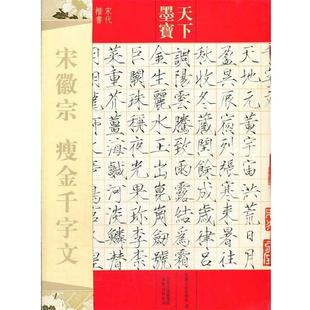 天下
墨寶
宋代
楷書
宋徽宗 瘦金千字文
天地元黃宇宙洪荒日月
盈昃辰宿列張寒來暑往
秋收冬藏閏餘成歲律呂
調陽雲騰致雨露結為霜
金生麗水玉出崑岡劍號
巨闕珠稱夜光果珍李柰
菜重芥薑海鹹河淡鱗潛